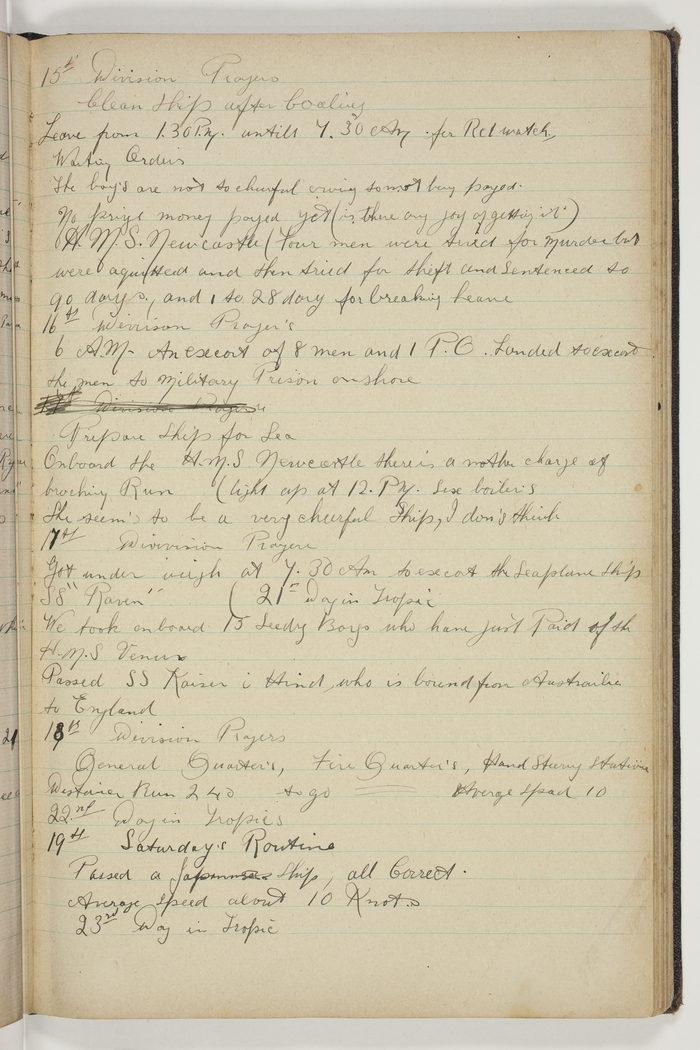 15th Division Prayers
Clean Ship after Coaling
Leave from 1.30 P.M. untill 7.30 AM for Red watch,
Waiting Orders
The boy's are not so cheerful owing to not being payed.
No prize money payed yet (is there any joy of getting it)
H.M.S. Newcastle (Four men were tried for murder but
were aquitted and then tried for theft and sentenced to
90 days, and 1 to 28 day for breaking leave
16th Divison Prayer's
6 AM An excort of 8 men and 1 P.O. Landed to excort
the men to Military Prison on shore
Division Prayers
Prepare Ship for Sea
Onboard the H.M.S Newcastle there is a nother charge of
broching Rum (light up at 12. P.M. Six boiler's
She seem's to be a very cheerful Ship, I don't think
17th Divivision Prayers
Got under weigh at 7.30 Am to excort the Seaplane Ship
SS "Raven" (21st Day in Tropic
We took onboard 15 Seedy Boys who have just Paid of the
H.M.S Venus
Passed SS Kaiser i Hind, who is bound from Austrailia
to England
18th Division Prayers
General Quarter's, Fire Quarter's, Hand Steering Stations
Distance Run 240 to go Average Spead 10
22nd Day in Tropics
19th Saturday's Routine
Passed a Japannese Ship, all Correct.
Average Speed about 10 Knots
23rd Day in Tropic